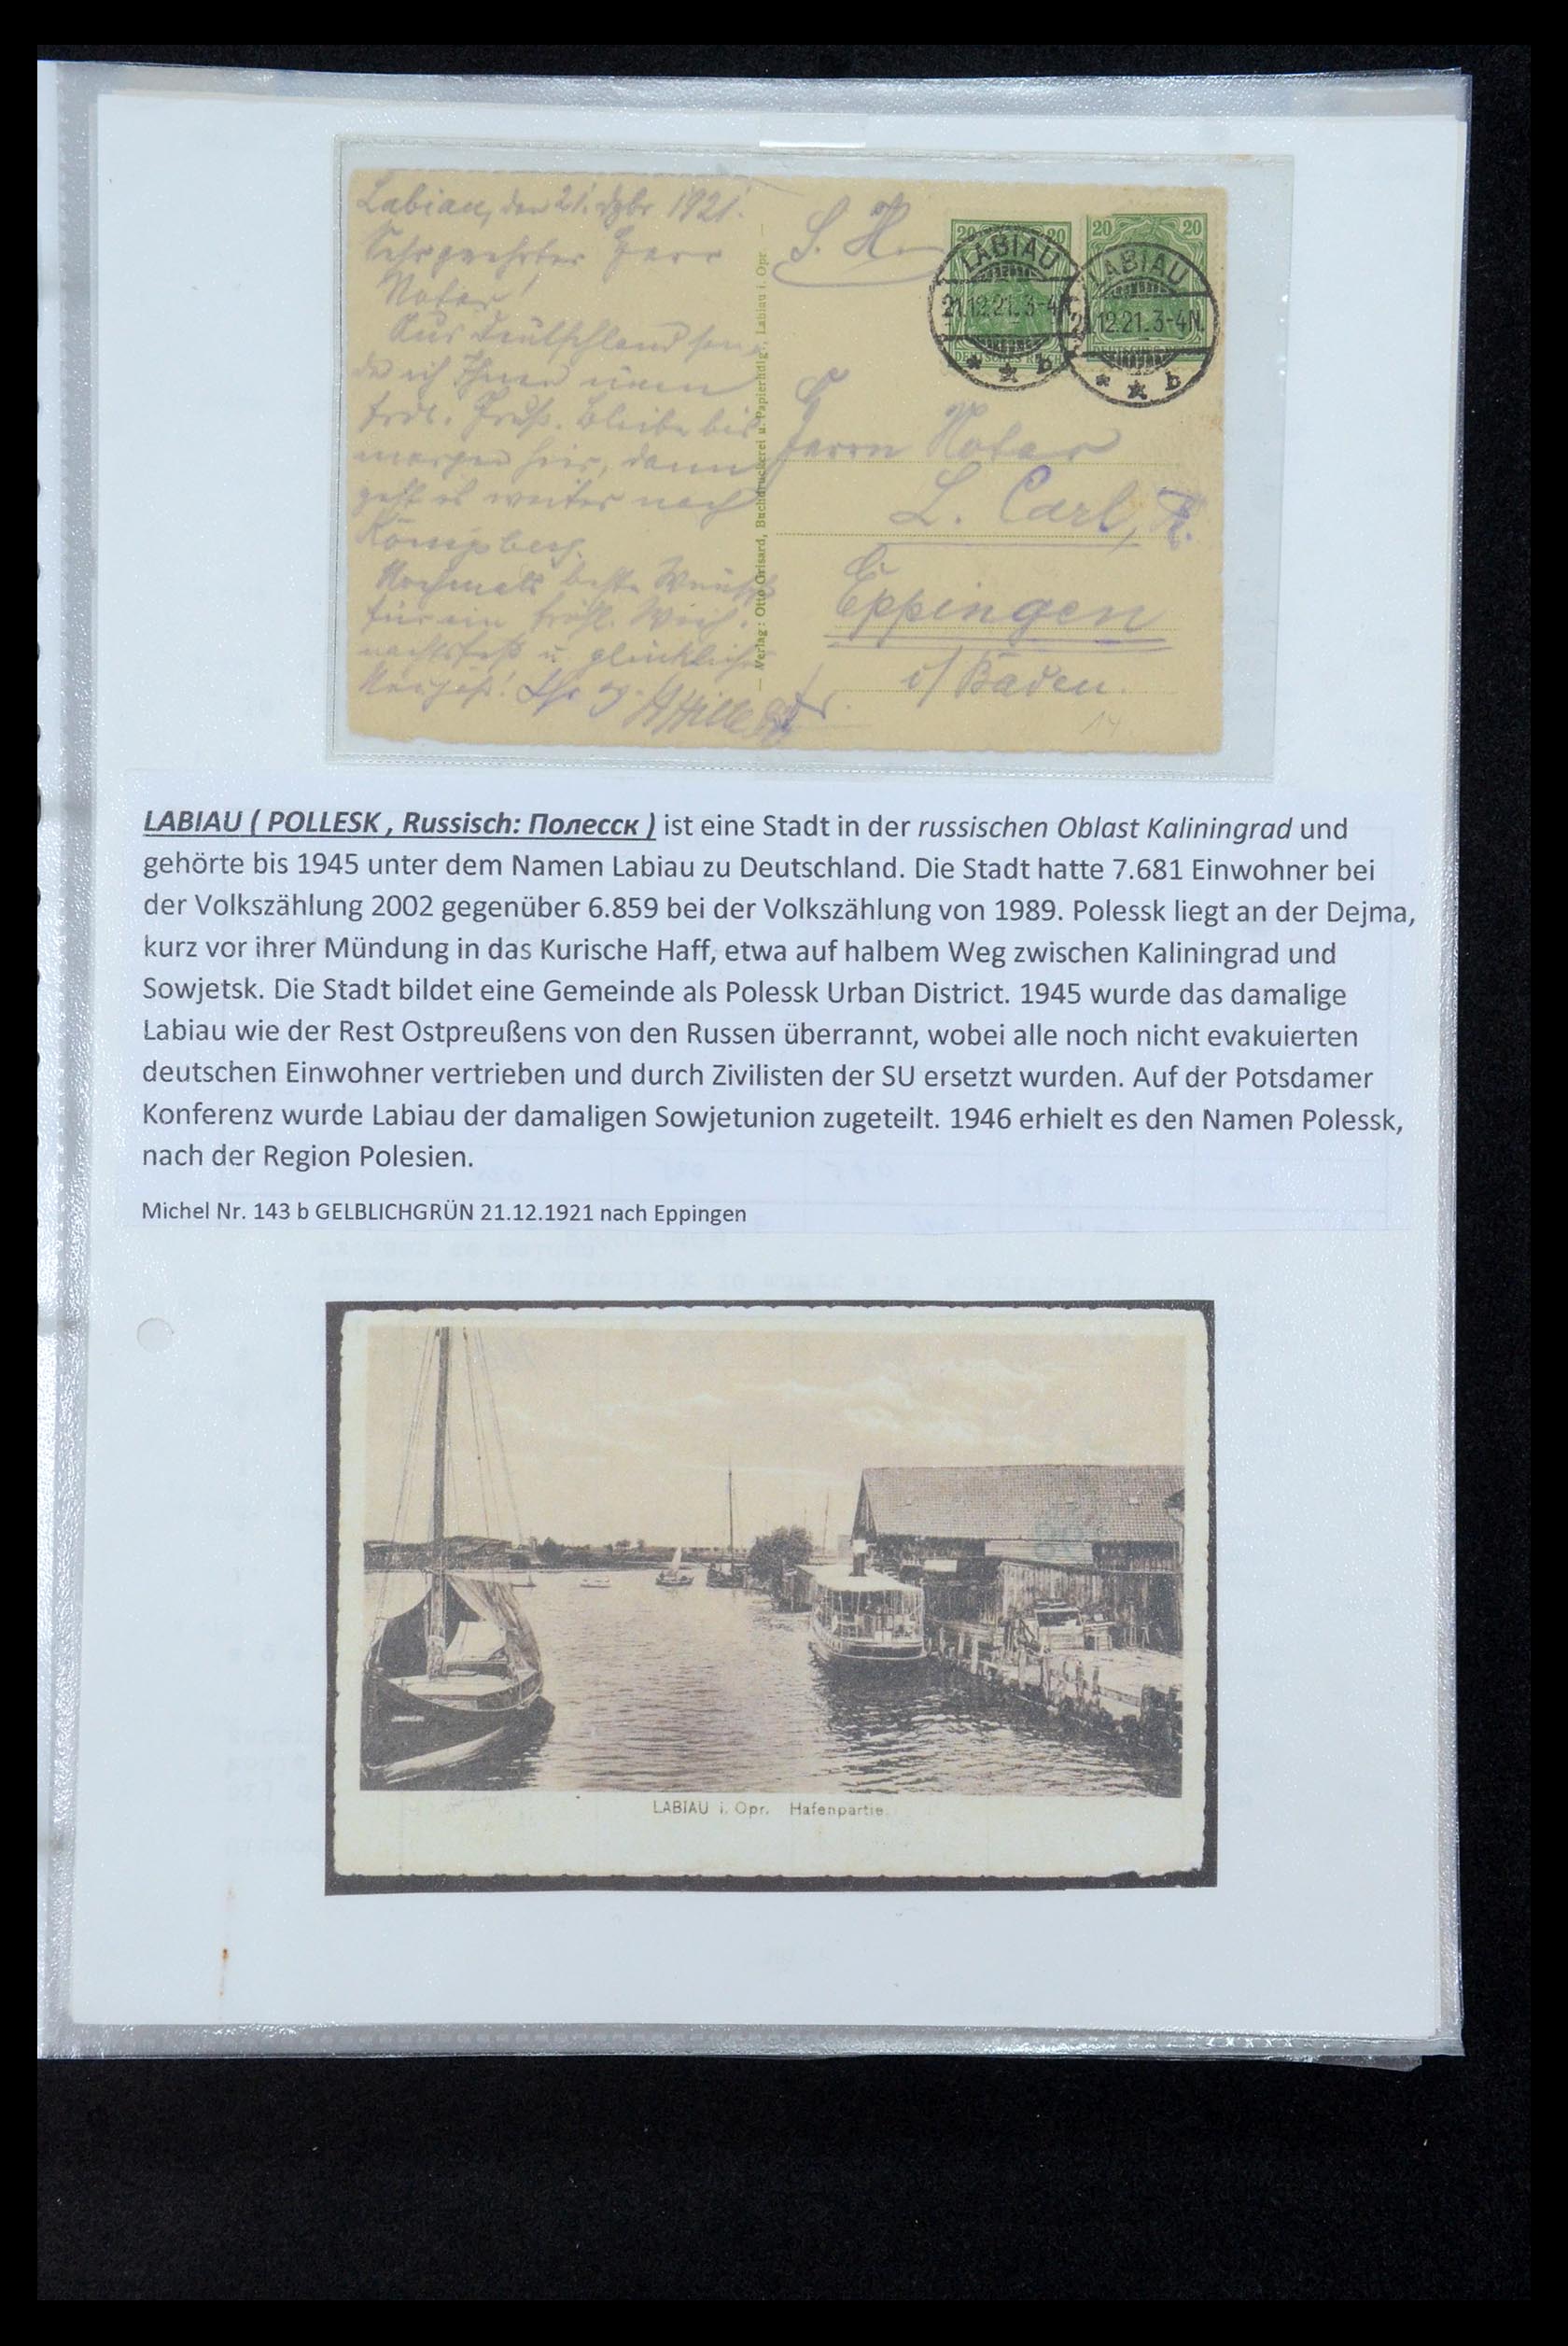 Labiau, den 21. Dzbr 1921.
Sehr geehrter Herr
Notar!
Aus Deutschland sen-
de ich Ihnen einen
frdl. Gruß. Bleibe bis
morgen hier, dann
geht es weiter nach
Königsberg.
Nochmals beste Wünsche
für ein fröhl. Weih-
nachtsfest u. glückliches
Neujahr! Ihr
Verlag: Otto Grisard, Buchdruckerei u. Papierhdlg., Labiau i. Opr.
S. H.
20 20
20 20
DEUTSCHES REICH
LABIAU
21.12.21.3-4N.
* * b
LABIAU
21.12.21.3-4N.
* * b
Herrn Notar
L. Carl,
Eppingen
i/ Baden.
14
LABIAU ( POLLESK , Russisch: Полесск ) ist eine Stadt in der russischen Oblast Kaliningrad und
gehörte bis 1945 unter dem Namen Labiau zu Deutschland. Die Stadt hatte 7.681 Einwohner bei
der Volkszählung 2002 gegenüber 6.859 bei der Volkszählung von 1989. Polessk liegt an der Dejma,
kurz vor ihrer Mündung in das Kurische Haff, etwa auf halbem Weg zwischen Kaliningrad und
Sowjetsk. Die Stadt bildet eine Gemeinde als Polessk Urban District. 1945 wurde das damalige
Labiau wie der Rest Ostpreußens von den Russen überrannt, wobei alle noch nicht evakuierten
deutschen Einwohner vertrieben und durch Zivilisten der SU ersetzt wurden. Auf der Potsdamer
Konferenz wurde Labiau der damaligen Sowjetunion zugeteilt. 1946 erhielt es den Namen Polessk,
nach der Region Polesien.
Michel Nr. 143 b GELBLICHGRÜN 21.12.1921 nach Eppingen
LABIAU i. Opr. Hafenpartie.